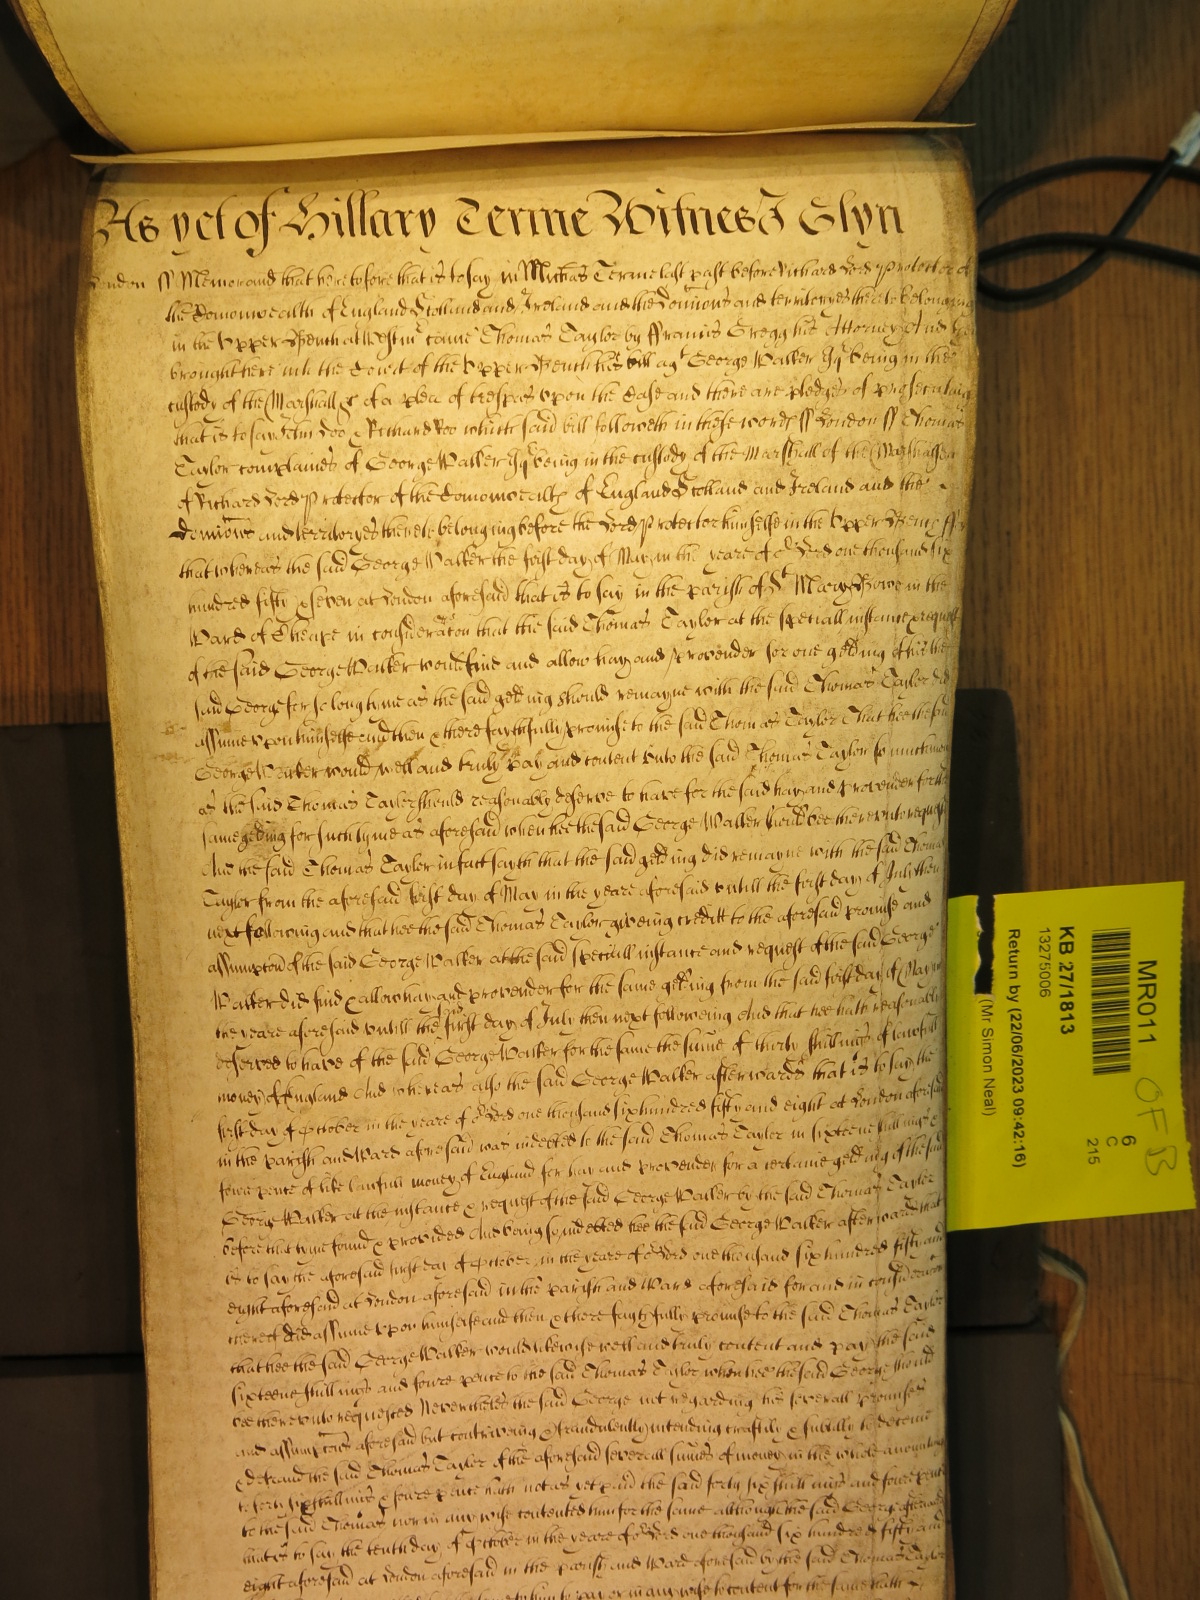 As yet of Hillary Terme Witnes J Glyn
London ss Memorand that heretofore that is to say in Michas Terme last past before Richard Lord Protector of
the Comonwealth of England Scotland and Ireland and the Dominions and territoryes thereto belonging
in the Upper Bench at Westmr came Thomas Taylor by Francis Gregg his Attorney And
brought here into the Court of the Upper Bench his bill agt George Walker Esqr being in the
custody of the Marshall &c of a plea of trespas upon the Case and there are pledges of prosecuting
that is to say John Doo & Richard Roo which said bill followeth in these words ss London ss Thomas
Taylor complaines of George Walker Esqr being in the custody of the Marshall of the Marshalsea
of Richard Lord Protector of the Comonwealth of England Scotland and Ireland and the
Dominions and territoryes thereto belonging before the Lord Protector himselfe in the Upper Bench ff
that whereas the said George Walker the first day of May in the yeare of or Lord one thousand six
hundred fifty & seven at London aforesaid that is to say in the parish of St Mary Bowe in the
Ward of Cheape in consideracon that the said Thomas Taylor at the speciall instance & request
of the said George Walker would find and allow hay and provender for one gelding of his the
said George for so long tyme as the said gelding should remayne with the said Thomas Taylor did
assume upon himselfe and then & there faythfully promise to the said Thomas Taylor That hee the said
George Walker would well and truly pay and content unto the said Thomas Taylor so much money
as the said Thomas Taylor should reasonably deserve to have for the said hay and provender for the
same gelding for such tyme as aforesaid when hee the said George Walker should bee thereunto request
And the said Thomas Taylor in fact sayth that the said gelding did remayne with the said Thomas
Taylor from the aforesaid first day of May in the yeare aforesaid untill the first day of July then
next following and that hee the said Thomas Taylor giveing creditt to the aforesaid promise and
assumpcon of the said George Walker at the said speciall instance and request of the said George
Walker did find & allow hay and provender for the same gelding from the said first day of May in
the yeare aforesaid untill the first day of July then next following And that hee hath reasonably
deserved to have of the said George Walker for the same the sume of thirty shillings of lawfull
money of England And whereas also the said George Walker afterwards that is to say the
first day of October in the yeare of or Lord one thousand six hundred fifty and eight at London aforesaid
in the parish and Ward aforesaid was indebted to the said Thomas Taylor in sixteene shillings &
foure pence of like lawfull money of England for hay and provender for a certaine gelding of the said
George Walker at the instance & request of the said George Walker by the said Thomas Taylor
before that tyme found & provided And being so indebted hee the said George Walker afterwards that
is to say the aforesaid first day of October in the yeare of or Lord one thousand six hundred fifty and
eight aforesaid at London aforesaid in the parish and Ward aforesaid for and in consideracon
thereof did assume upon himselfe and then & there faythfully promise to the said Thomas Taylor
that hee the said George Walker would likewise well and truly content and pay the said
sixteene shillings and foure pence to the said Thomas Taylor when hee the said George should
bee thereunto requested Neverthelesse the said George not regarding his severall promises
and assumpcons aforesaid but contriveing & fraudulently intending craftily & subtilly to deceive
& defraud the said Thomas Taylor of the aforesaid severall sumes of money in the whole amounting
to forty six shillings & foure pence hath not as yet paid the said forty six shillings and foure pence
to the said Thomas nor in any wise contented him for the same although the said George afterwards
that is to say the tenth day of October in the yeare of or Lord one thousand six hundred fifty and
eight aforesaid at London aforesaid in the parish and Ward aforesaid by the said Thomas Taylor
to pay or in any wise to content for the same hath
MR011
OF B
6
C
215
KB 27/1813
13275006
Return by (22/06/2023 09:42:16)
(Mr Simon Neal)